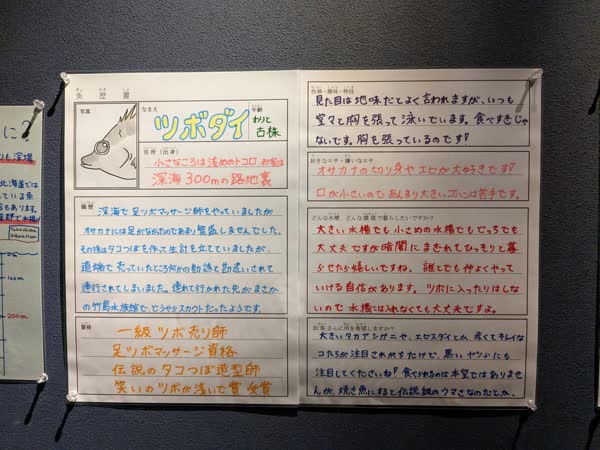 魚歴書
写真
なまえ
ツボダイ
年齢
わりと
古株
住所(出身)
小さなころは浅めのトコロ、お家は
深海300mの路地裏
職歴
深海で足ツボマッサージ師をやっていましたが
オサカナには足がなかったのであまり繁盛しませんでした。
その後はタコつぼを作って生計を立てていましたが、
道端で売っていたところ何かの勧誘と勘違いされて
連行されてしまいました。連れて行かれた先がまさか
の竹島水族館で、どうやらスカウトだったようです。
資格
一級ツボ売り師
足ツボマッサージ資格
伝説のタコつぼ造型師
笑いのツボが浅いで賞 受賞
性格・趣味・特技
見た目は地味だとよく言われますが、いつも
堂々と胸を張って泳いでいます。食べすぎじゃ
ないです。胸を張っているのです!
好きなエサ・嫌いなエサ
オサカナの切り身やエビが大好きです!
口が小さいのであんまり大きいゴハンは苦手です。
どんな水槽、どんな環境で暮らしたいですか?
大きい水槽でも小さめの水槽でもどっちでも
大丈夫ですが暗闇にまぎれてひっそりと暮
らせたら嬉しいですね。誰とでも仲よくやって
いける自信があります。ツボに入ったりはしな
いので水槽には入れなくても大丈夫ですよ。
お客さんに何を希望しますか?
大きいタカアシガニや、エビスダイとか、赤くてキレイな
コたちが注目されがちだけど、黒いヤツらにも
注目してくださいね!食べられるのは本望ではありませ
んが、焼き魚にすると伝説級のウマさなのだとか。
に?
深場
北海道では
している魚
あります。
100m
200m